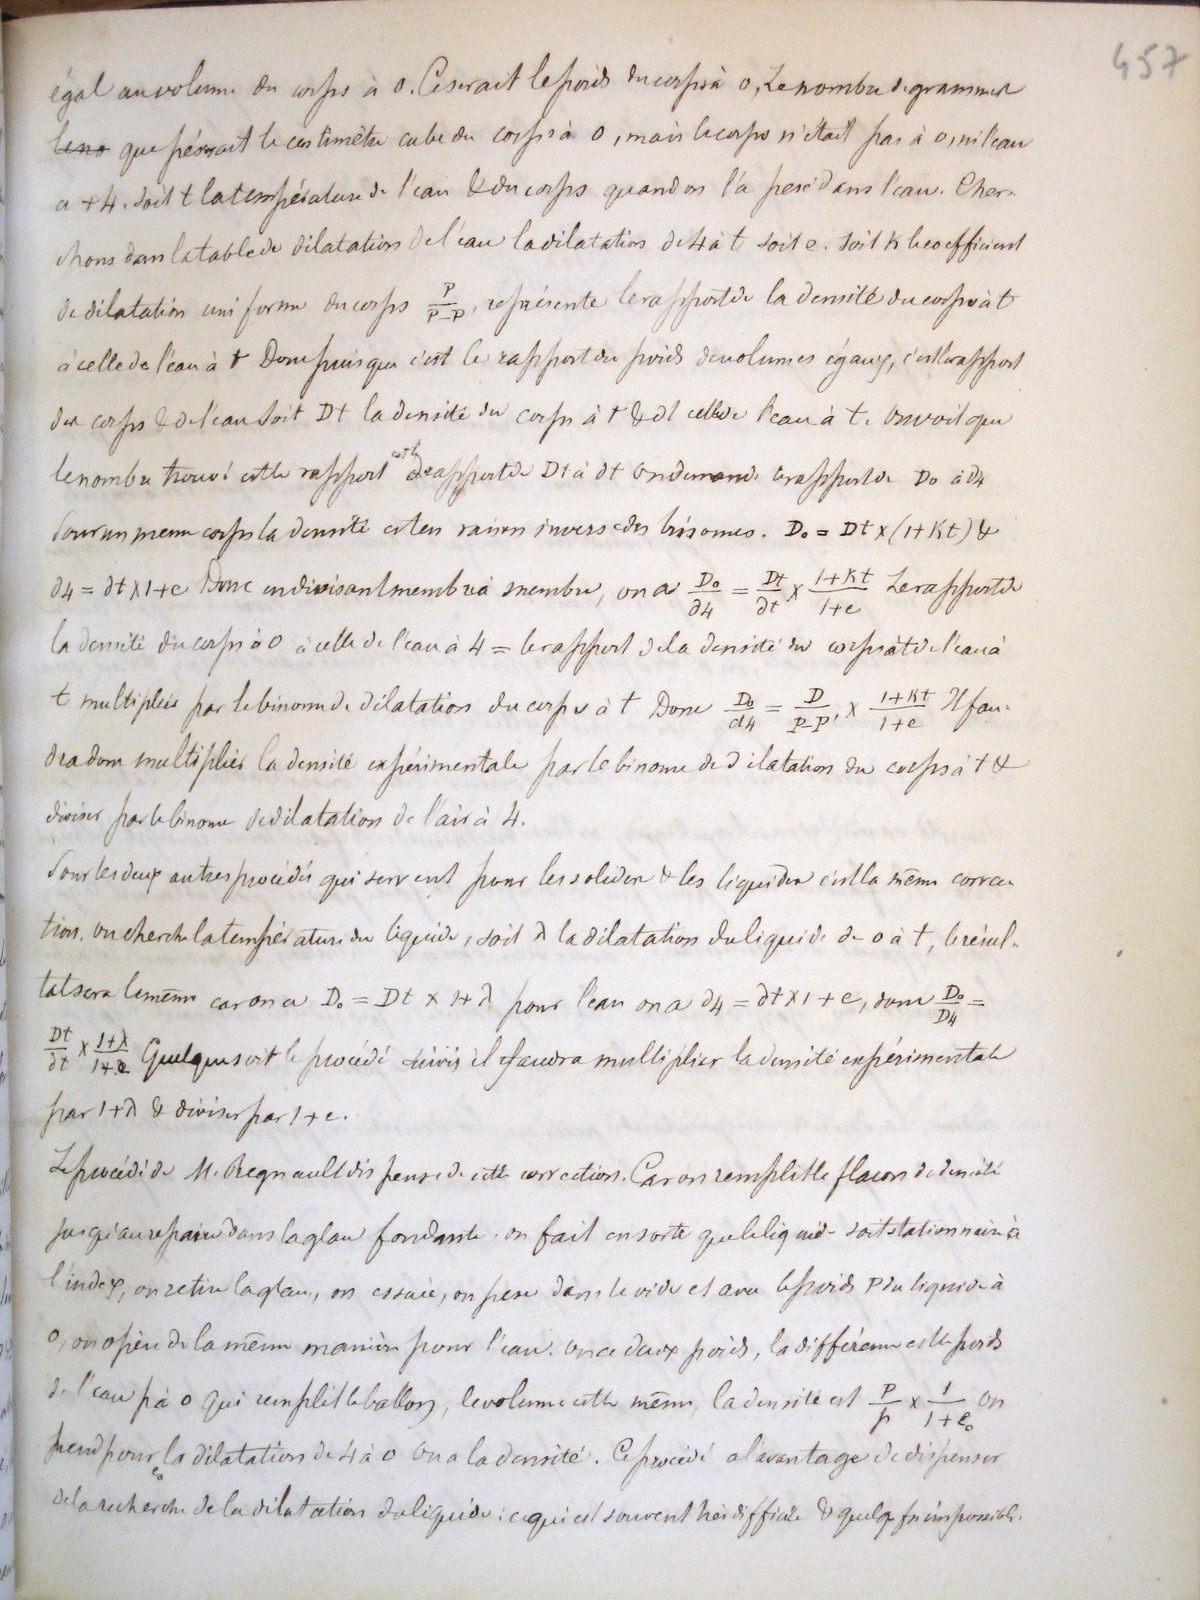 457
égal au volume du corps à 0. Ce serait le poids du corps à 0, Le nombre de grammes
que péserait le centimètre cube du corps à 0, mais le corps n'était pas à 0, ni l'eau
a +4. Soit t la température de l'eau & du corps quand on l'a pesé dans l'eau. Cher-
chons dans la table de dilatation de l'eau la dilatation de 4 à t soit e. Soit K le coefficient
de dilatation uniforme du corps P/P-P, représente le rapport de la densité du corps à t
à celle de l'eau à t Donc puisque c'est le rapport du poids de volumes égaux, c'est le rapport
du corps & de l'eau Soit Dt la densité du corps à t & ∂t celle de l'eau à t. On voit que
le nombre trouvé est le rapport est le rapport de Dt à ∂t On demande le rapport de D₀ à ∂4
Pour un même corps la densité est en raison inverse des binomes. D₀ = Dt × (1+Kt) &
∂4 = ∂t × 1+e Donc en divisant membre à membre, on a D₀/∂4 = Dt/∂t × 1+Kt/1+e Le rapport de
la densité du corps à 0 à celle de l'eau à 4 = le rapport de la densité du corps à t de l'eau à
t multipliée par le binome de dilatation du corps à t Donc D₀/d4 = D/P-P', × 1+Kt/1+e Il fau-
dra donc multiplier la densité expérimentale par le binome de dilatation du corps à t &
diviser par le binome de dilatation de l'air à 4.
Pour les deux autres procédés qui servent pour les solides & les liquides c'est la même correc-
tion. On cherche la température du liquide, soit λ la dilatation du liquide de 0 à t, le résul-
tat sera le même car on a D₀ = Dt × 1+λ pour l'eau on a ∂4 = ∂t × 1+e, donc D₀/D4 =
Dt/∂t × 1+λ/1+e Quelque soit le procédé suivi il faudra multiplier la densité expérimentale
par 1+λ & diviser par 1+e.
Le procédé de M. Regnault dispense de cette correction. Car on remplit le flacon de densité
jusqu'au repaire dans la glace fondante. on fait en sorte que le liquide soit stationnaire à
l'index, on retire la glace, on essuie, on pese dans le vide et avec le poids P du liquide à
0, on opère de la même manière pour l'eau. On a deux poids, la différence est le poids
de l'eau p à 0 qui remplit le ballon, le volume est le même, la densité est P/p × 1/1+e₀ On
prend pour e₀ la dilatation de 4 à 0 On a la densité. Ce procédé a l'avantage de dispenser
de la recherche de la dilatation du liquide : ce qui est souvent très difficile & quelq fs impossible.